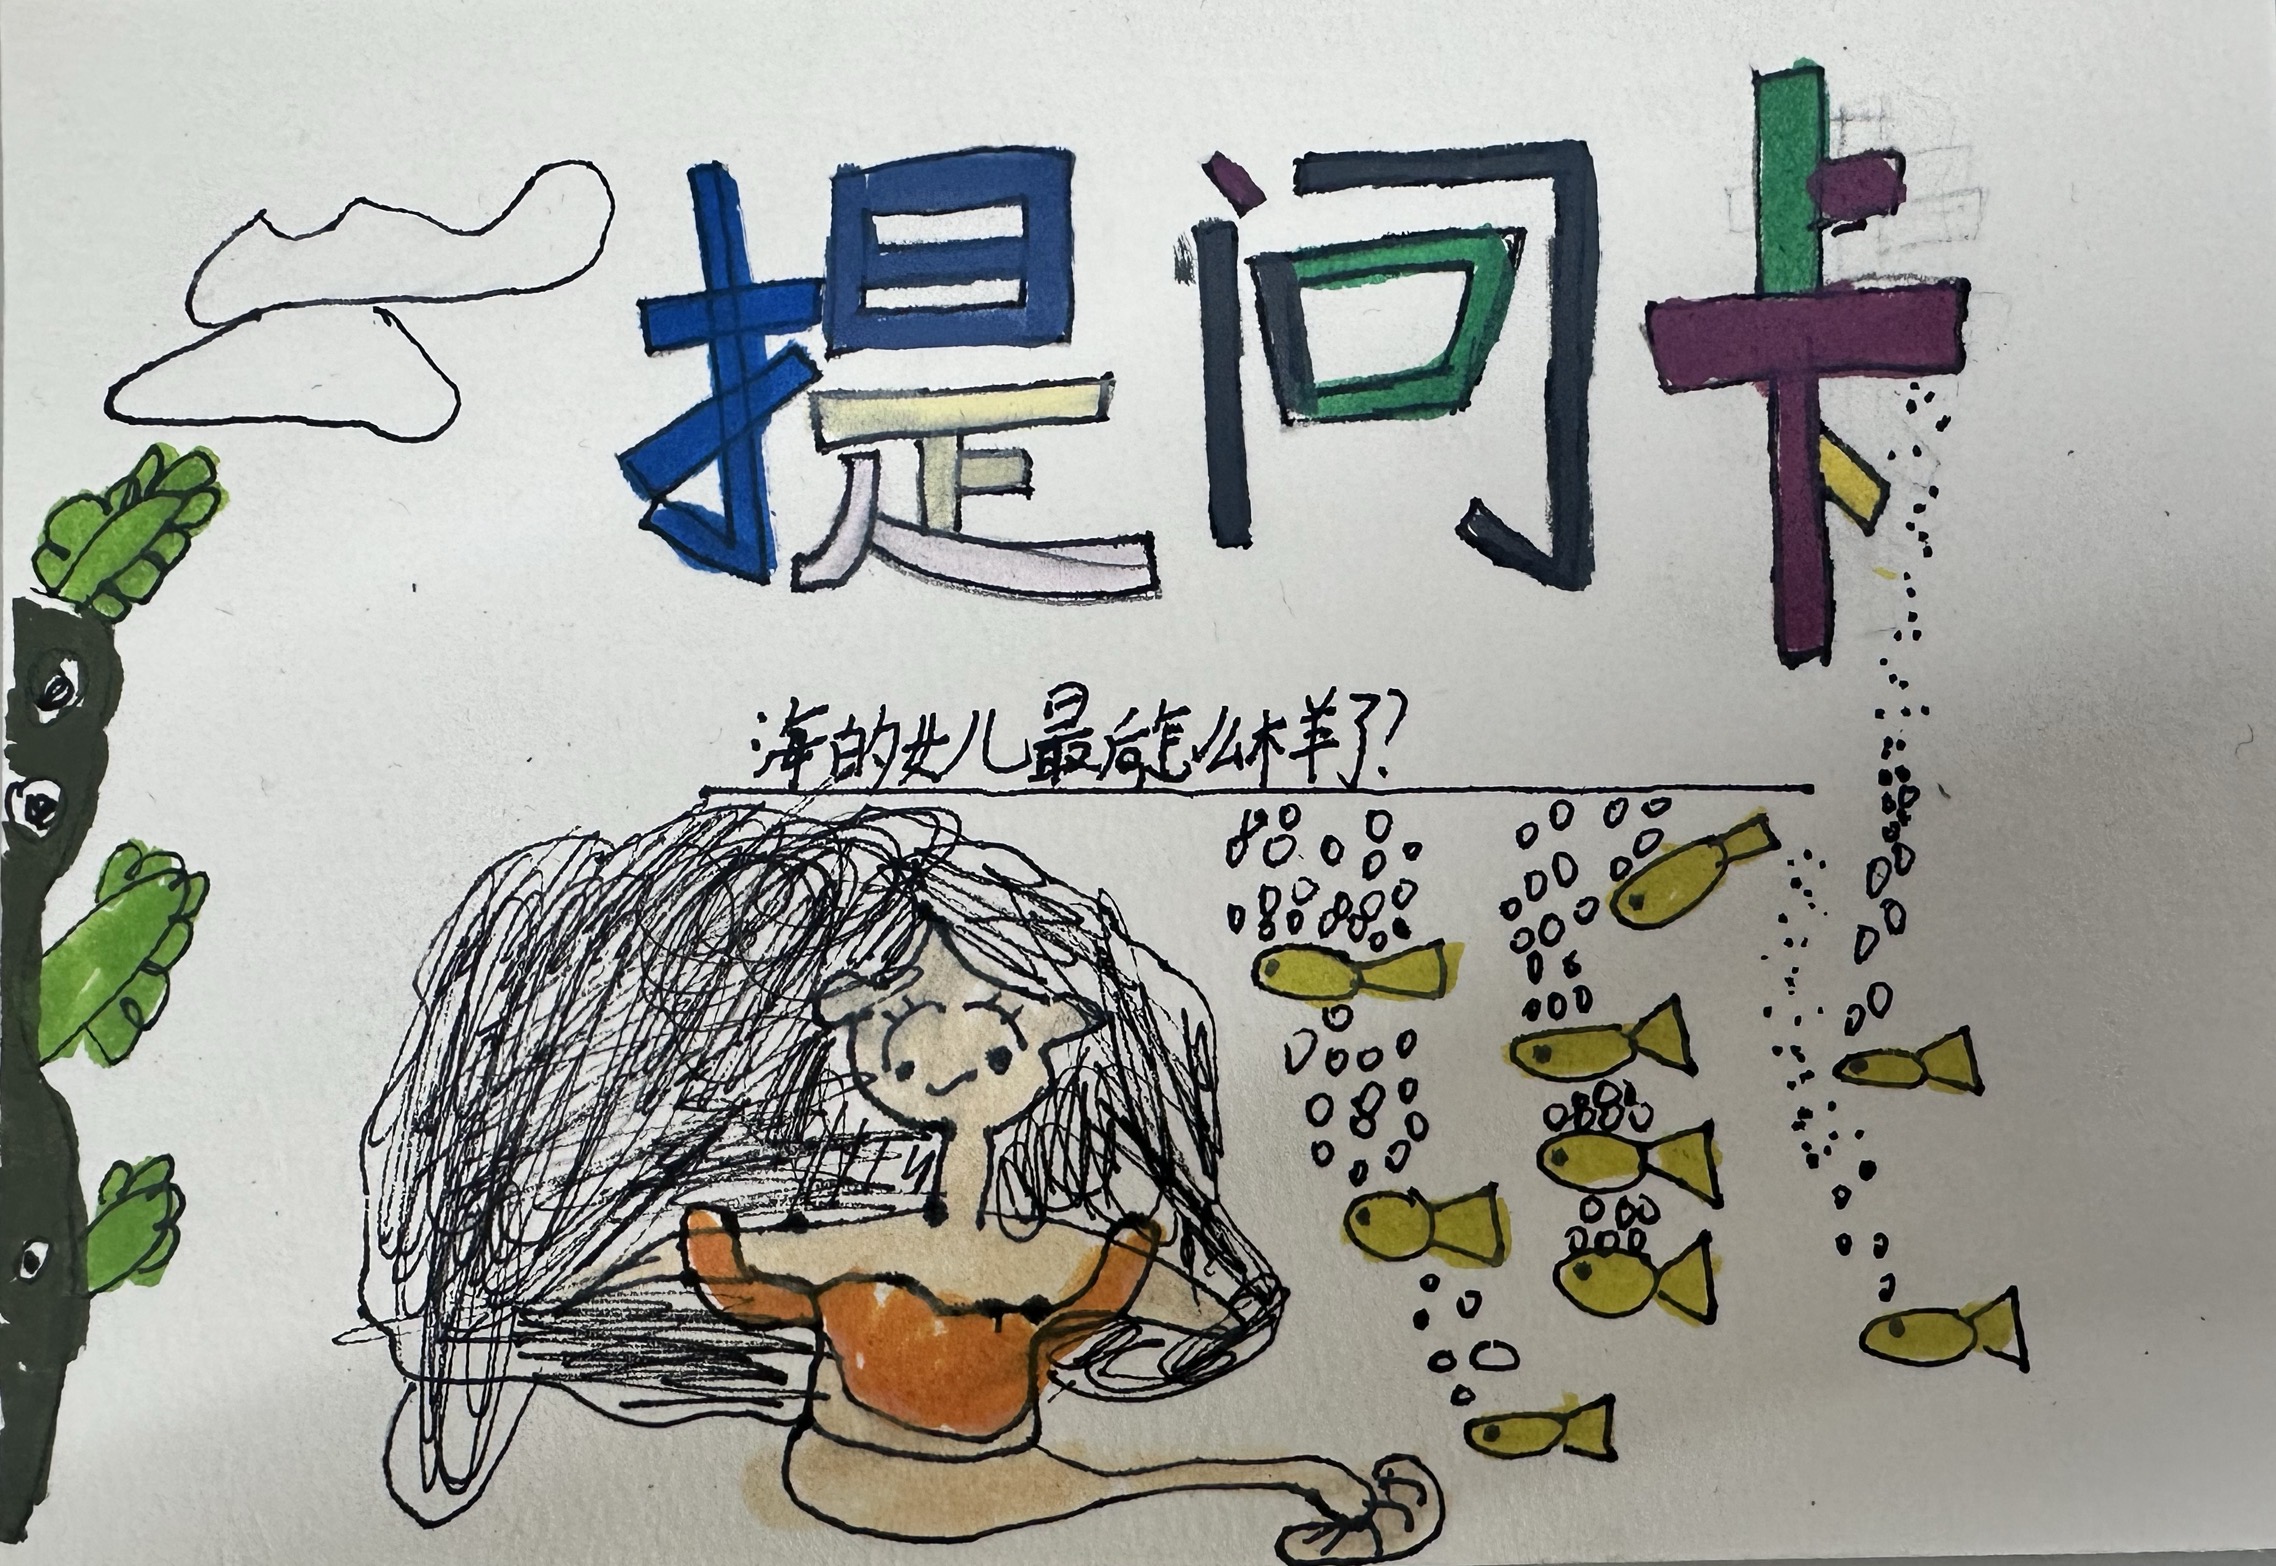 提问卡
海的女儿最后怎么样了?